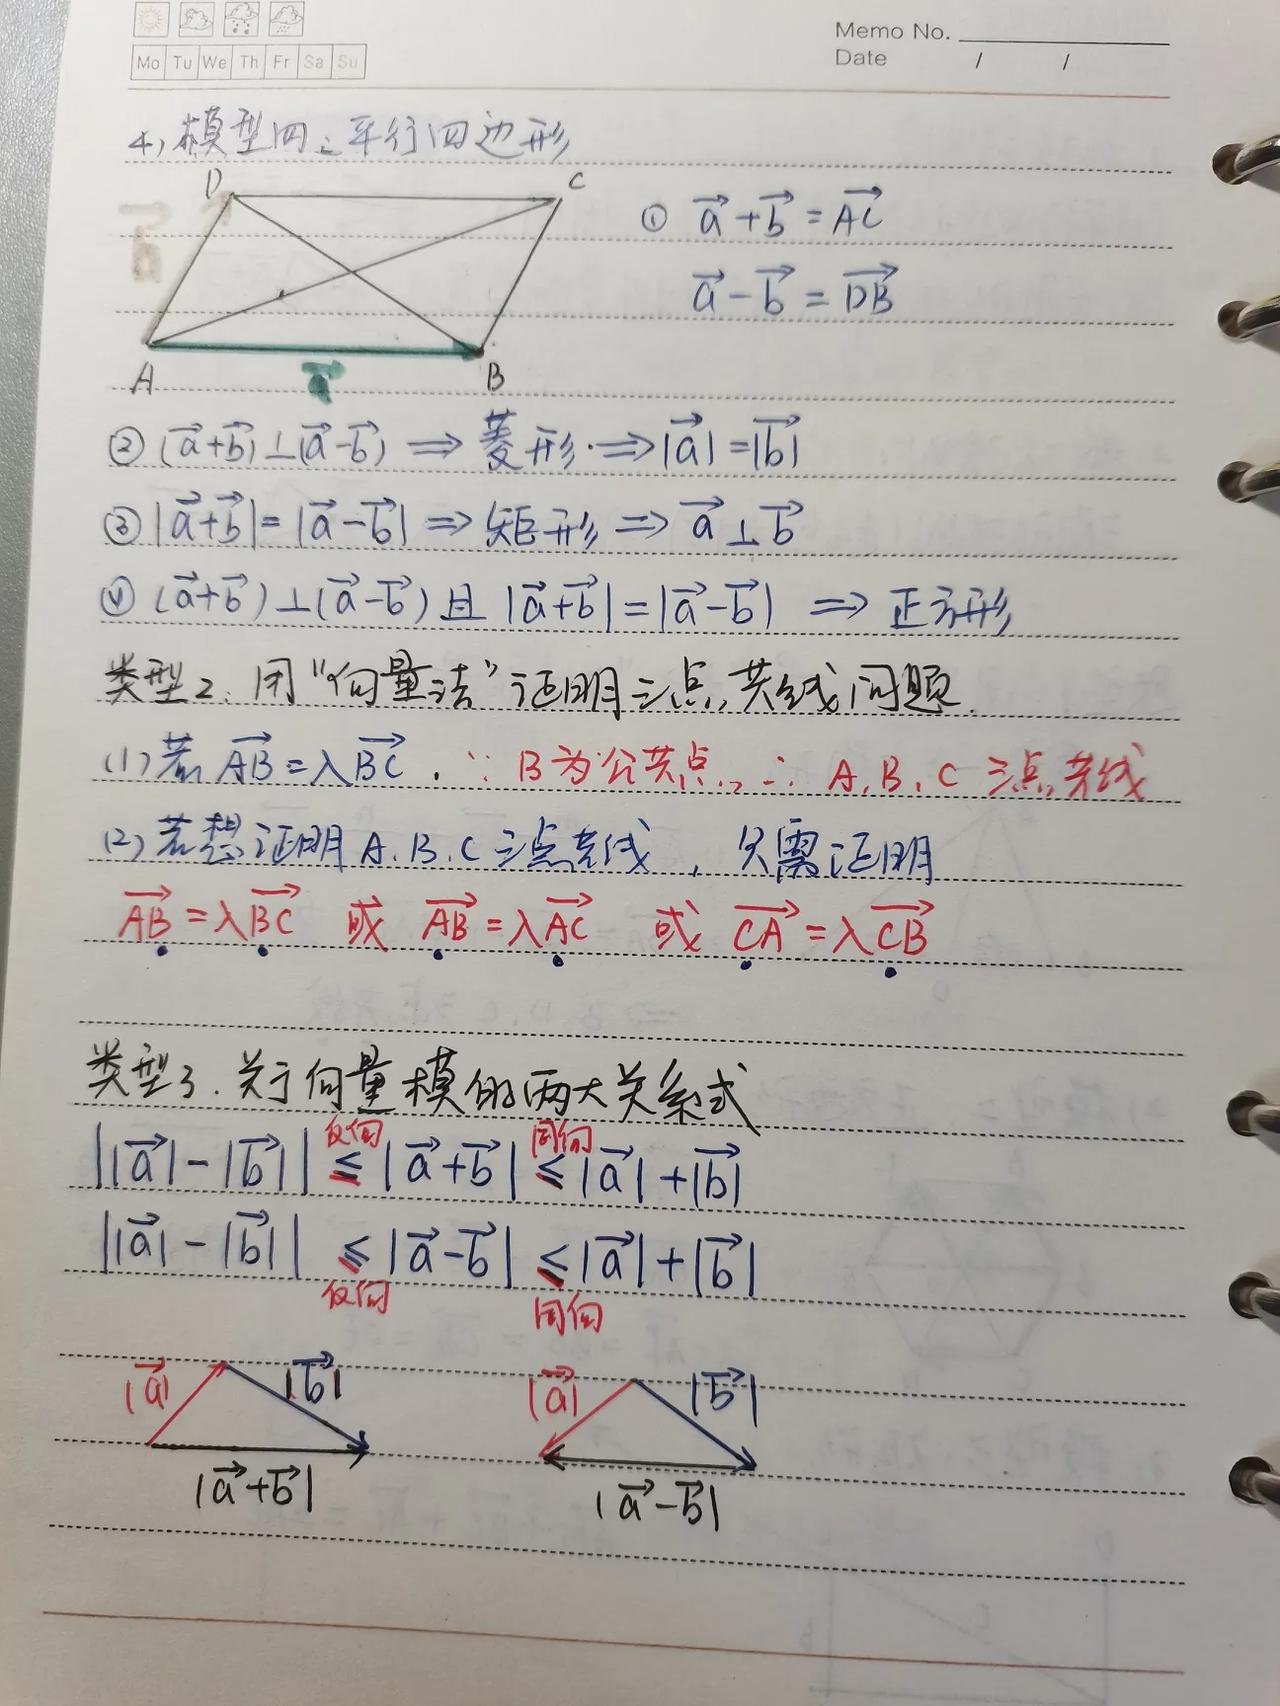 Memo No.
Mo Tu We Th Fr Sa Su
Date / /
4) 模型四:平行四边形
D C
① a⃗+b⃗=AC⃗
a⃗-b⃗=DB⃗
A a⃗ B
② (a⃗+b⃗)⊥(a⃗-b⃗) ⇒ 菱形 ⇒ |a⃗|=|b⃗|
③ |a⃗+b⃗|=|a⃗-b⃗| ⇒ 矩形 ⇒ a⃗⊥b⃗
④ (a⃗+b⃗)⊥(a⃗-b⃗) 且 |a⃗+b⃗|=|a⃗-b⃗| ⇒ 正方形
类型2. 用"向量法"证明三点共线问题.
(1) 若 AB⃗=λBC⃗. ∵ B为公共点, ∴ A.B.C 三点共线
(2) 若想证明 A.B.C 三点共线, 只需证明
AB⃗=λBC⃗ 或 AB⃗=λAC⃗ 或 CA⃗=λCB⃗
类型3. 关于向量模的两大关系式
反向 同向
||a⃗|-|b⃗|| ≤ |a⃗+b⃗| ≤ |a⃗|+|b⃗|
||a⃗|-|b⃗|| ≤ |a⃗-b⃗| ≤ |a⃗|+|b⃗|
反向 同向
|a⃗| |b⃗| |a⃗| |b⃗|
|a⃗+b⃗| |a⃗-b⃗|